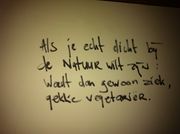 Als je echt dicht bij
de NATUUR wilt zijn:
Wordt dan gewoon ziek,
gekke vegetariër.